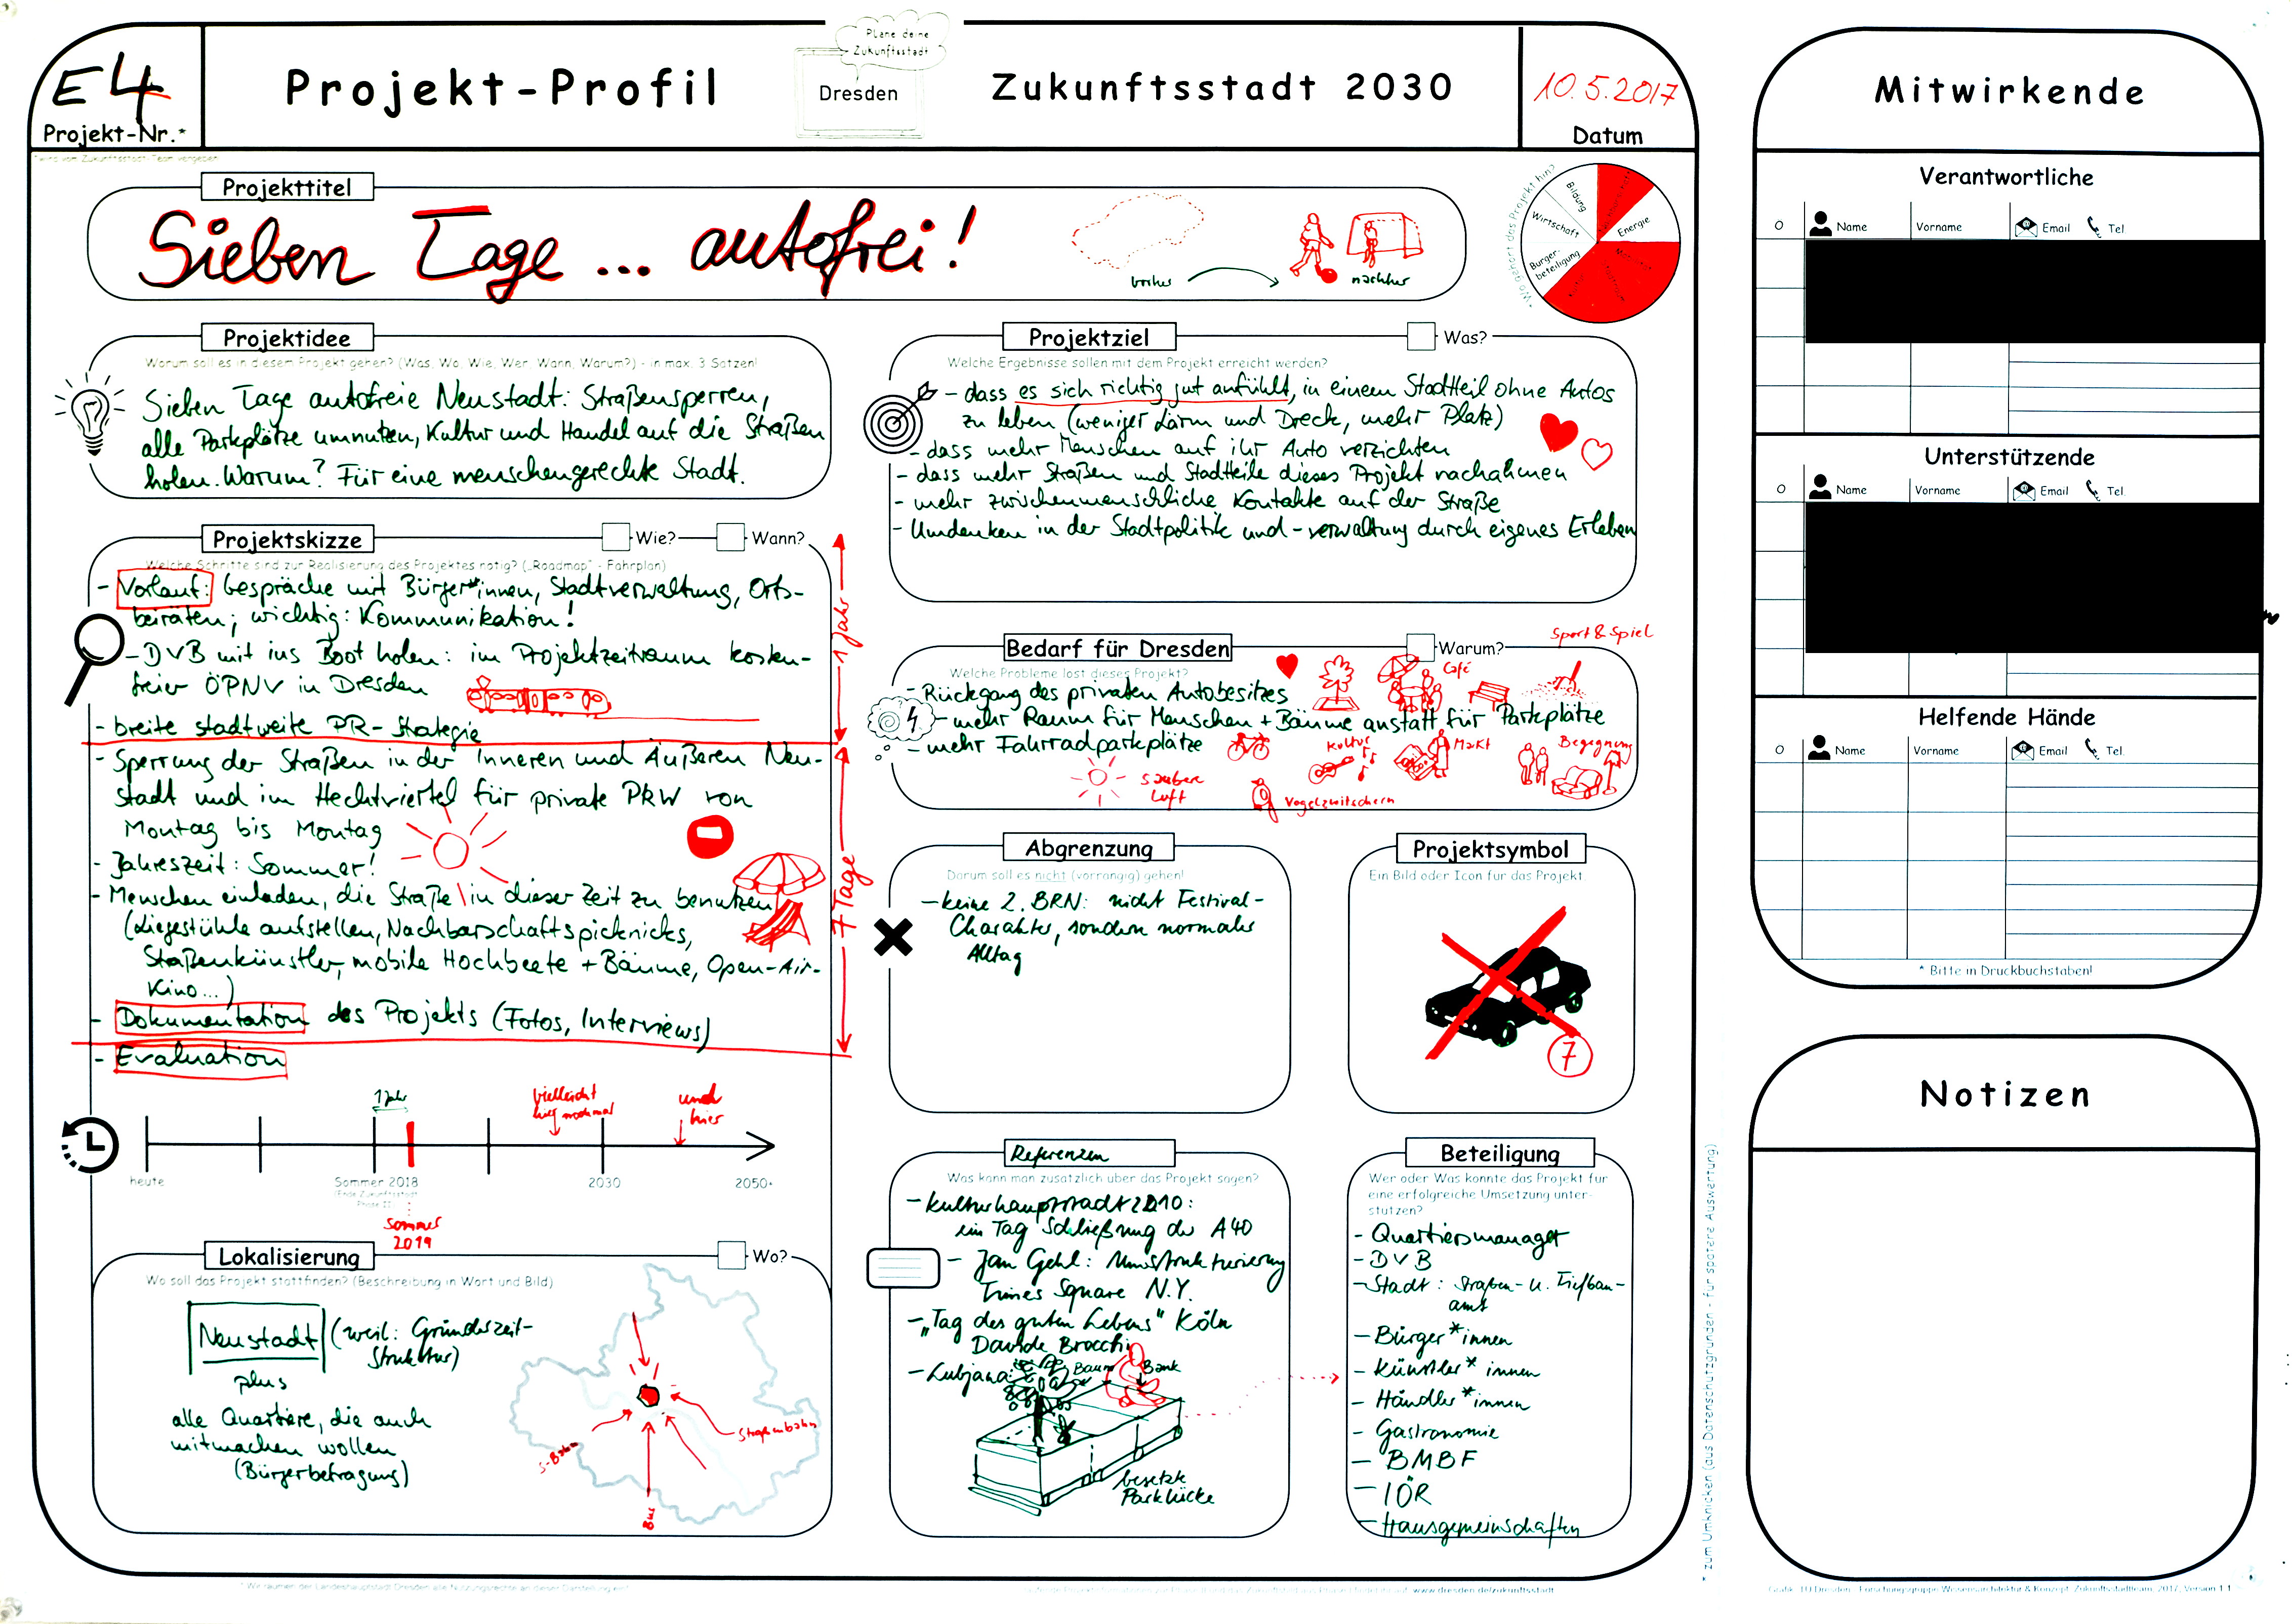 E4
Projekt-Nr.*
*wird vom Zukunftsstadt-Team vergeben
Projekt-Profil
Plane deine
Zukunftsstadt
Dresden
Zukunftsstadt 2030
10.5.2017
Datum
Projekttitel
Sieben Tage ... autofrei!
vorher
nachher
Bildung
Energie
Wirtschaft
Bürger-
beteiligung
Projektidee
Worum soll es in diesem Projekt gehen? (Was, Wo, Wie, Wer, Wann, Warum?) - in max. 3 Sätzen!
Sieben Tage autofreie Neustadt: Straßensperren,
alle Parkplätze umnutzen, Kultur und Handel auf die Straßen
holen. Warum? Für eine menschengerechte Stadt.
Projektskizze
Wie?
Wann?
Welche Schritte sind zur Realisierung des Projektes nötig? („Roadmap" - Fahrplan)
- Vorlauf: Gespräche mit Bürger*innen, Stadtverwaltung, Orts-
beiräten; wichtig: Kommunikation!
- DVB mit ins Boot holen: im Projektzeitraum kosten-
freier ÖPNV in Dresden
- breite stadtweite PR-Strategie
1 Jahr
- Sperrung der Straßen in der Inneren und Äußeren Neu-
stadt und im Hechtviertel für private PKW von
Montag bis Montag
- Jahreszeit: Sommer!
- Menschen einladen, die Straße in dieser Zeit zu benutzen
(Liegestühle aufstellen, Nachbarschaftspicknicks,
Straßenkünstler, mobile Hochbeete + Bäume, Open-Air-
Kino...)
- Dokumentation des Projekts (Fotos, Interviews)
7 Tage
- Evaluation
1 Jahr
vielleicht
hier nochmal
und
hier
heute
Sommer 2018
(Ende Zukunftsstadt
Phase II)
2030
2050+
Sommer
2019
Lokalisierung
Wo?
Wo soll das Projekt stattfinden? (Beschreibung in Wort und Bild)
Neustadt (weil: Gründerzeit-
Struktur)
plus
alle Quartiere, die auch
mitmachen wollen
(Bürgerbefragung)
S-Bahn
Straßenbahn
Bus
Projektziel
Was?
Welche Ergebnisse sollen mit dem Projekt erreicht werden?
- dass es sich richtig gut anfühlt, in einem Stadtteil ohne Autos
zu leben (weniger Lärm und Dreck, mehr Platz)
- dass mehr Menschen auf ihr Auto verzichten
- dass mehr Straßen und Stadtteile dieses Projekt nachahmen
- mehr zwischenmenschliche Kontakte auf der Straße
- Umdenken in der Stadtpolitik und -verwaltung durch eigenes Erleben
Bedarf für Dresden
Warum?
Welche Probleme löst dieses Projekt?
Sport & Spiel
Café
- Rückgang des privaten Autobesitzes
- mehr Raum für Menschen + Bäume anstatt für Parkplätze
- mehr Fahrradparkplätze
Kultur
Markt
Begegnung
saubere
Luft
Vogelzwitschern
Abgrenzung
Darum soll es nicht (vorrangig) gehen!
- keine 2. BRN: nicht Festival-
Charakter, sondern normaler
Alltag
Projektsymbol
Ein Bild oder Icon für das Projekt.
7
Referenzen
Was kann man zusätzlich über das Projekt sagen?
- Kulturhauptstadt 2010:
ein Tag Schließung der A40
- Jan Gehl: Umstrukturierung
Times Square N.Y.
- „Tag des guten Lebens" Köln
Davide Brocchi
- Lubjana:
Baum
Bank
besetzte
Parklücke
Beteiligung
Wer oder Was könnte das Projekt für
eine erfolgreiche Umsetzung unter-
stützen?
- Quartiersmanager
- DVB
- Stadt: Straßen- u. Tiefbau-
amt
- Bürger*innen
- Künstler*innen
- Händler*innen
- Gastronomie
- BMBF
- IÖR
- Hausgemeinschaften
* Wir räumen der Landeshauptstadt Dresden alle Nutzungsrechte an dieser Darstellung ein!
www.dresden.de/zukunftsstadt
* zum Umknicken (aus Datenschutzgründen - für spätere Auswertung)
Mitwirkende
Verantwortliche
Name
Vorname
Email
Tel
Unterstützende
Name
Vorname
Email
Tel.
Helfende Hände
Name
Vorname
Email
Tel.
* Bitte in Druckbuchstaben!
Notizen